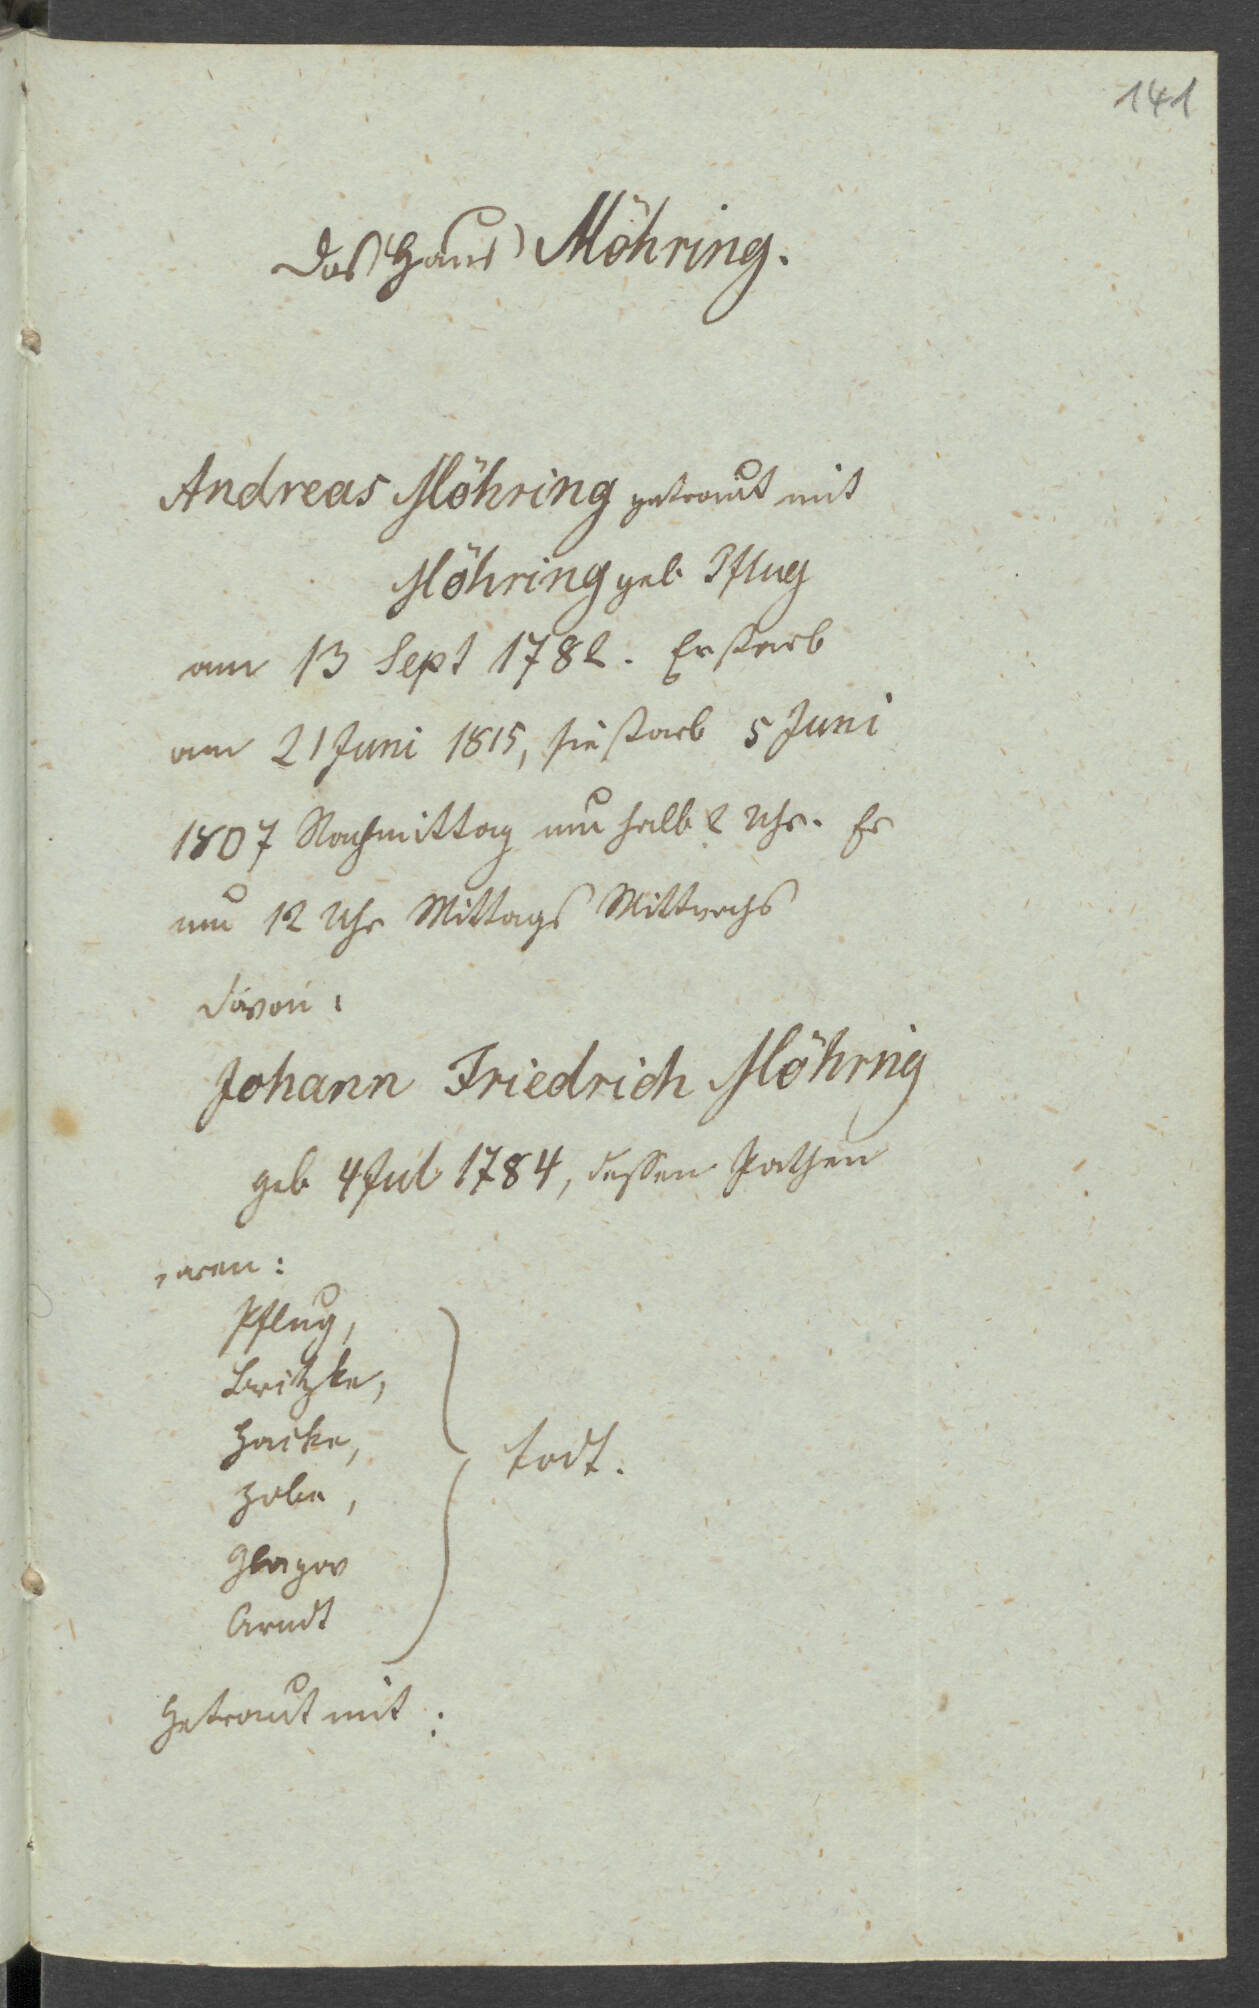 141
Das Haus Möhring.
Andreas Möhring getraut mit
Möhring geb. Pflug
am 13 Sept 1782. Er starb
am 21 Juni 1815, sie starb 5 Juni
1807 Nachmittag um halb 2 Uhr. Er
um 12 Uhr Mittags Mittwochs
davon:
Johann Friedrich Möhring
geb 4 Jul 1784, dessen Pathen
waren:
Pflug,
Britzke,
Hacke,
todt.
Glagow
Arndt
Getraut mit: